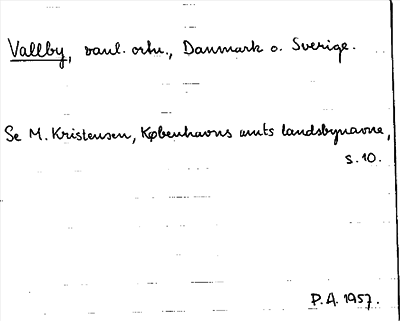 Vallby, vanl. ortn., Danmark o. Sverige.
Se M. Kristensen, Københavns amts landsbynavne,
s. 10.
P.A. 1957.